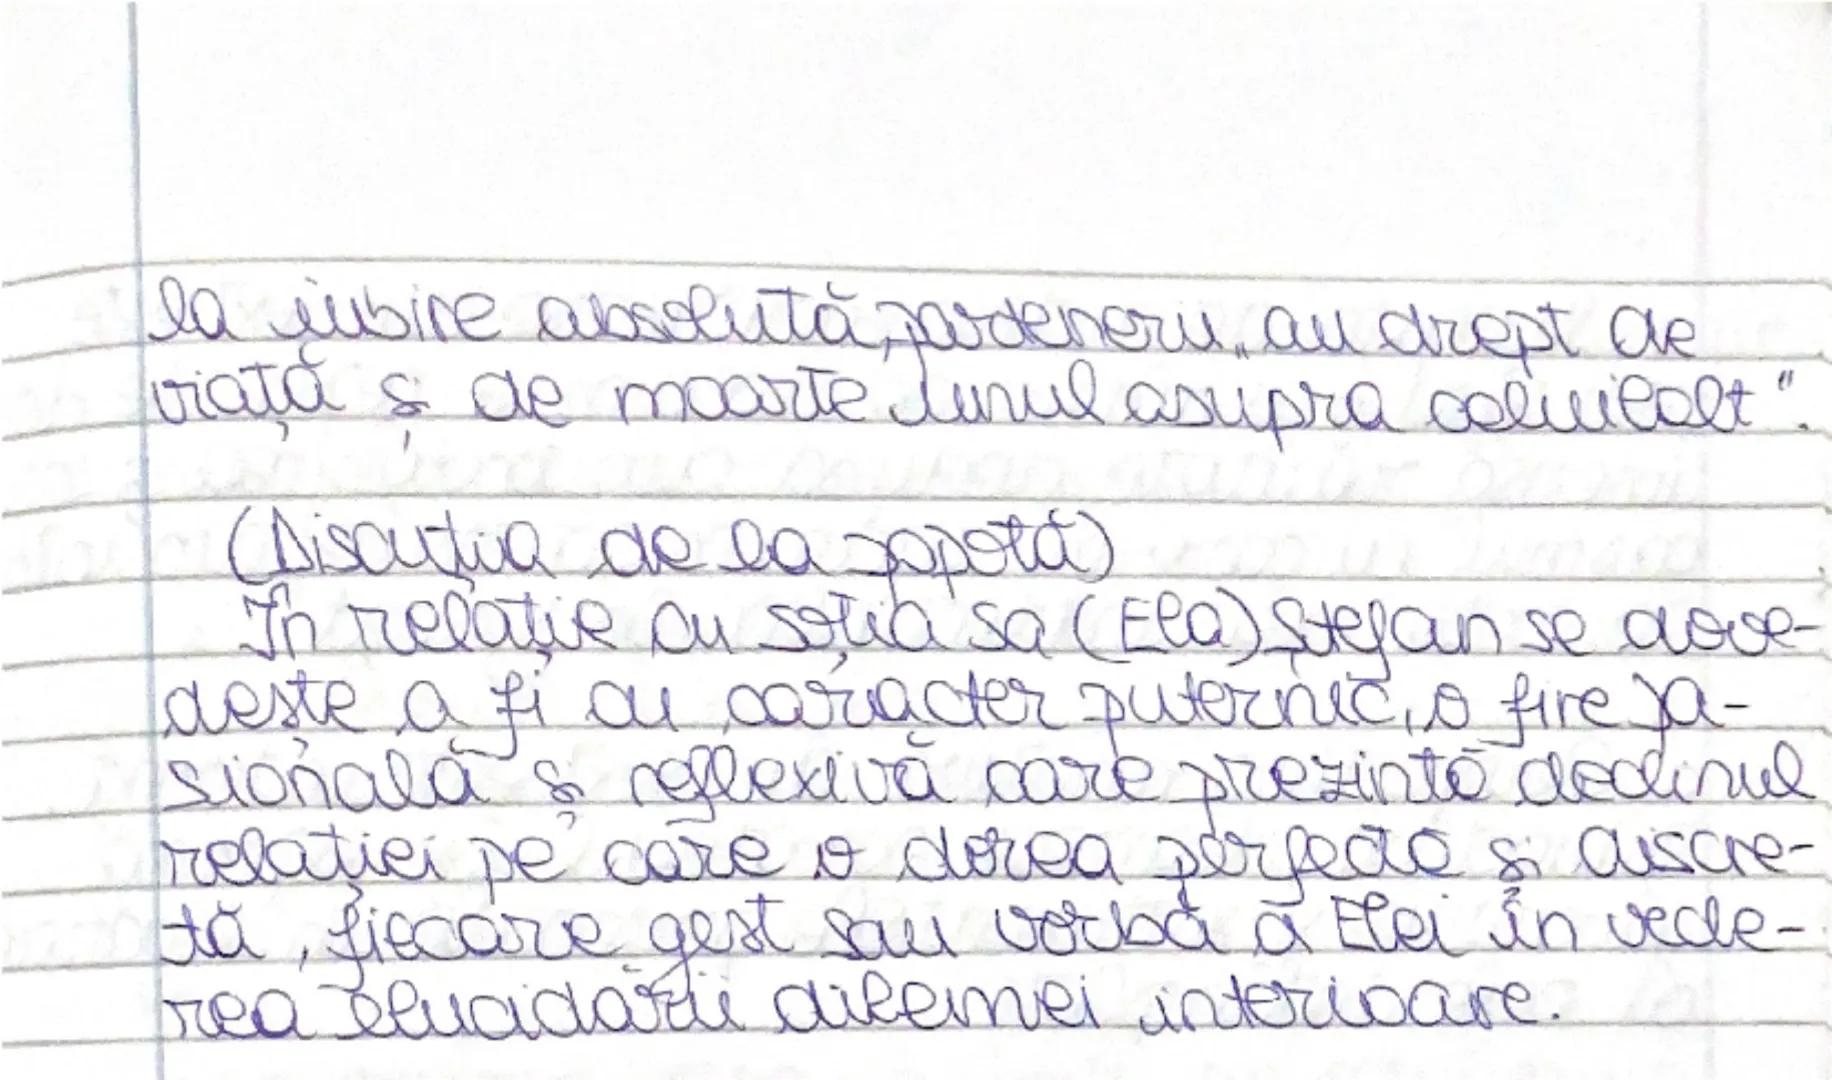 la iubire absolută, parteneru „au drept de
viață și de moarte unul asupra celuilalt".
(Discuția de la popotă)
În relație cu soția sa (Ela) Ștefan se dove-
dește a fi cu caracter puternic, o fire pa-
sională și reflexivă care prezintă declinul
relației pe care o dorea perfectă și discre-
tă, fiecare gest sau vorbă a Elei în vede-
rea elucidării dilemei interioare.